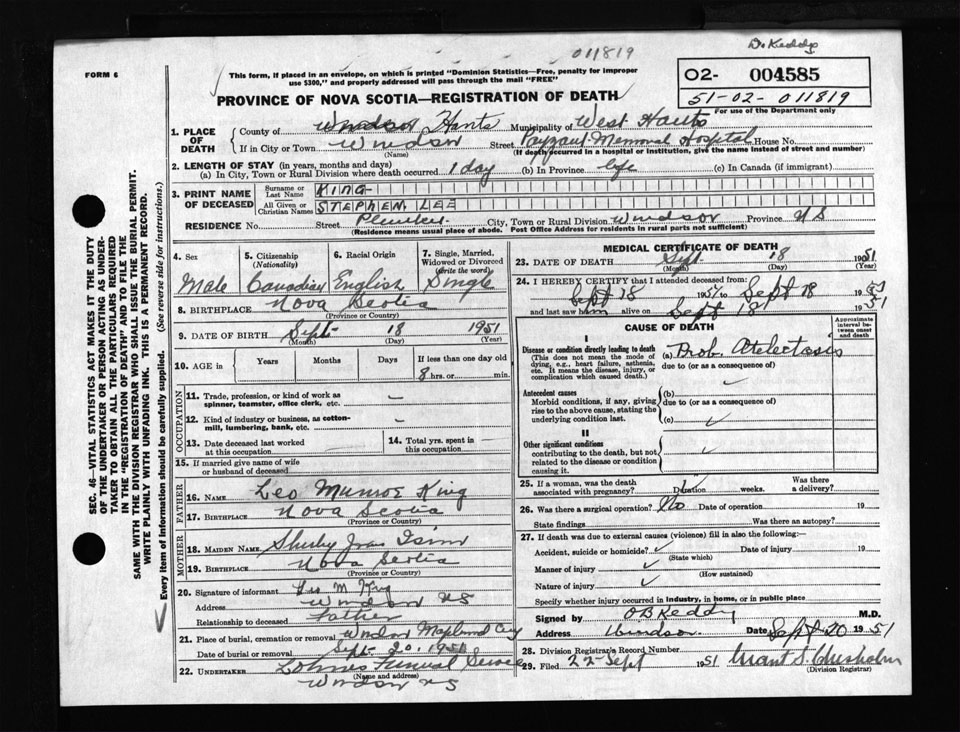 Dr Keddy
011819
FORM 6
This form, if placed in an envelope, on which is printed "Dominion Statistics—Free, penalty for improper
use $300," and properly addressed will pass through the mail "FREE"
O2- 004585
51-02-011819
For use of the Department only
PROVINCE OF NOVA SCOTIA—REGISTRATION OF DEATH
1. PLACE OF DEATH
County of Windsor Hants Municipality of West Hants
If in City or Town Windsor Street Payzant Memorial Hospital House No.
(Name) (If death occurred in a hospital or institution, give the name instead of street and number)
2. LENGTH OF STAY (in years, months and days)
(a) In City, Town or Rural Division where death occurred 1 day (b) In Province life (c) In Canada (if immigrant)
3. PRINT NAME OF DECEASED
Surname or Last Name KING
All Given or Christian Names STEPHEN LEE
RESIDENCE No. Street City, Town or Rural Division Windsor Province NS
(Residence means usual place of abode. Post Office Address for residents in rural parts not sufficient)
4. Sex Male
5. Citizenship (Nationality) Canadian
6. Racial Origin English
7. Single, Married, Widowed or Divorced (write the word) Single
8. BIRTHPLACE Nova Scotia
(Province or Country)
9. DATE OF BIRTH Sept 18 1951
(Month) (Day) (Year)
10. AGE in Years Months Days If less than one day old
8 hrs. or min.
OCCUPATION
11. Trade, profession, or kind of work as
spinner, teamster, office clerk, etc. —
12. Kind of industry or business, as cotton-
mill, lumbering, bank, etc. —
13. Date deceased last worked
at this occupation
14. Total yrs. spent in
this occupation
15. If married give name of wife
or husband of deceased
FATHER
16. NAME Leo Munroe King
17. BIRTHPLACE Nova Scotia
(Province or Country)
MOTHER
18. MAIDEN NAME Shirley Jean
19. BIRTHPLACE Nova Scotia
(Province or Country)
20. Signature of informant Leo M King
Address Windsor NS
Relationship to deceased Father
21. Place of burial, cremation or removal Windsor Maplewood Cey
Date of burial or removal Sept. 20, 1951
22. UNDERTAKER Funeral Service
(Name and address)
Windsor NS
MEDICAL CERTIFICATE OF DEATH
23. DATE OF DEATH Sept. 18 1951
(Month) (Day) (Year)
24. I HEREBY CERTIFY that I attended deceased from:
Sept 18 1951 to Sept 18 1951
and last saw him alive on Sept 18 1951
CAUSE OF DEATH
Approximate interval between onset and death
I
Disease or condition directly leading to death
(This does not mean the mode of
dying, e.g., heart failure, asthenia,
etc. It means the disease, injury, or
complication which caused death.)
(a) Prob. Atelectasis
due to (or as a consequence of)
Antecedent causes
Morbid conditions, if any, giving
rise to the above cause, stating the
underlying condition last.
(b)
due to (or as a consequence of)
(c)
II
Other significant conditions
contributing to the death, but not
related to the disease or condition
causing it.
25. If a woman, was the death
associated with pregnancy? Duration weeks. Was there
a delivery?
26. Was there a surgical operation? No Date of operation 19
State findings Was there an autopsy?
27. If death was due to external causes (violence) fill in also the following:—
Accident, suicide or homicide? Date of injury 19
(State which)
Manner of injury
(How sustained)
Nature of injury
Specify whether injury occurred in industry, in home, or in public place
Signed by O B Keddy M.D.
Address Windsor Date Sept 20 1951
28. Division Registrar's Record Number
29. Filed 22 Sept 1951 Grant S. Chisholm
(Division Registrar)
SEC. 46—VITAL STATISTICS ACT MAKES IT THE DUTY
OF THE UNDERTAKER OR PERSON ACTING AS UNDER-
TAKER TO OBTAIN ALL THE PARTICULARS REQUIRED
IN THE "REGISTRATION OF DEATH" AND TO FILE THE
SAME WITH THE DIVISION REGISTRAR WHO SHALL ISSUE THE BURIAL PERMIT.
WRITE PLAINLY WITH UNFADING INK. THIS IS A PERMANENT RECORD.
Every item of information should be carefully supplied. (See reverse side for instructions.)